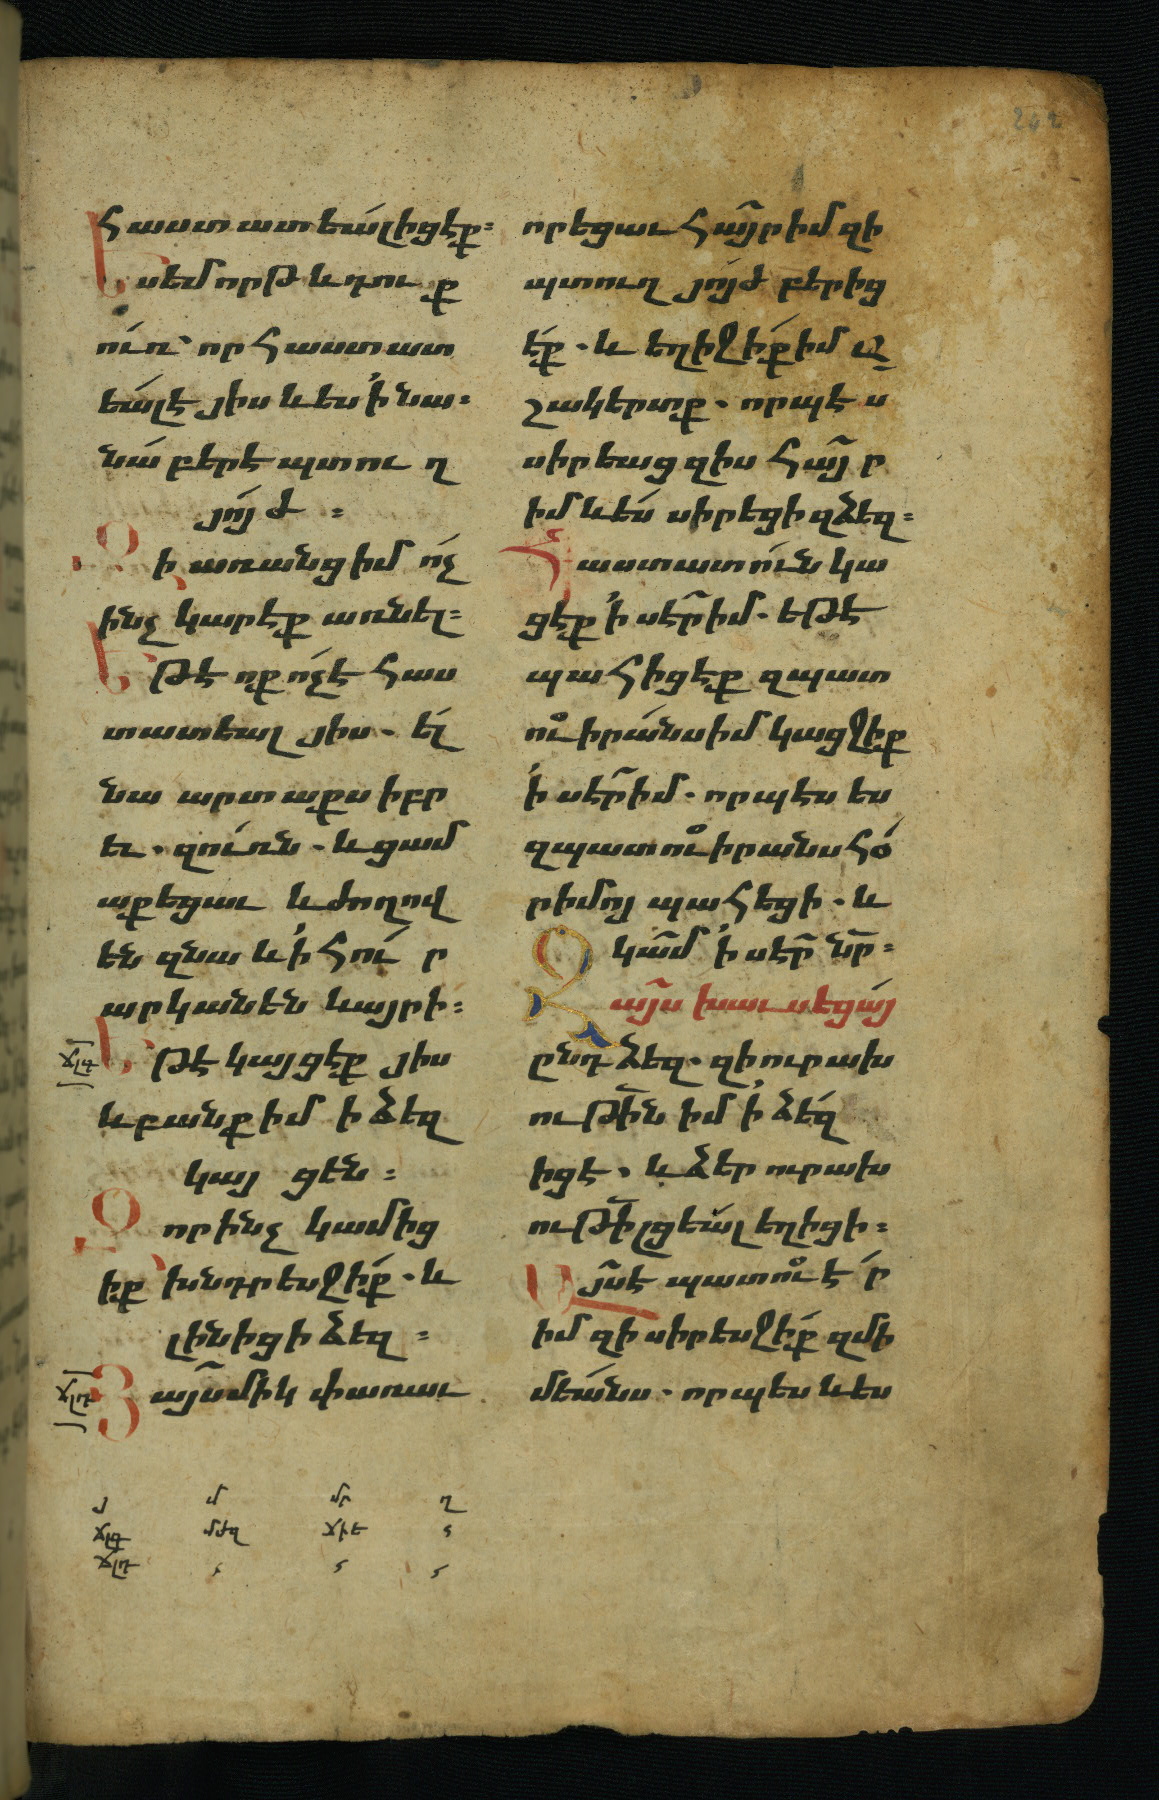 242
հաստատեալիցէք։
Ես եմ որթ և դուք
ուռ՝ որ հաստատ
եալէ յիս և ես ՚ի նա։
նա բերէ պտուղ
յոյժ ։
Զի առանց իմ ոչ
ինչ կարէք առնել։
Եթէ ոք ոչ է հաս
տատեալ յիս. ել
նա արտաքս իբր
եւ. զուռն. և ցամ
աքեցաւ և ժողով
են զնա և ՚ի հուր
արկանեն և այրի։
ՃԼԳ
Եթէ կայցէք յիս
և բանք իմ ի ձեզ
կայցեն։
Զոր ինչ կամից
իք խնդրեսջիք. և
լինիցի ձեզ ։
ՃԼԴ
Յայսմիկ փառաւ
որեցաւ հայր իմ զի
պտուղ յոյժ բերից
էք. և եղիջիք իմ ա
շակերտք. որպէս
սիրեաց զիս հայր
իմ և ես սիրեցի զձեզ։
Հաստատուն կա
ցէք ՚ի սէր իմ. եթէ
պահիցէք զպատ
ուիրանս իմ կացջիք
՚ի սէր իմ. որպէս ես
զպատուիրանս հօ
ր իմոյ պահեցի. և
կամ ՚ի սէր նր։
Զայս խաւսեցայ
ընդ ձեզ. զի ուրախ
ութին իմ ՚ի ձեզ
իցէ. և ձեր ուրախ
ութի լցեալ եղիցի։
Այս է պատուէր
իմ զի սիրեսջիք զմի
մեանս. որպես և ես
յ մ մր ղ
ՃԼԳ ՄԺԶ ՃԻԵ
ՃԼԴ